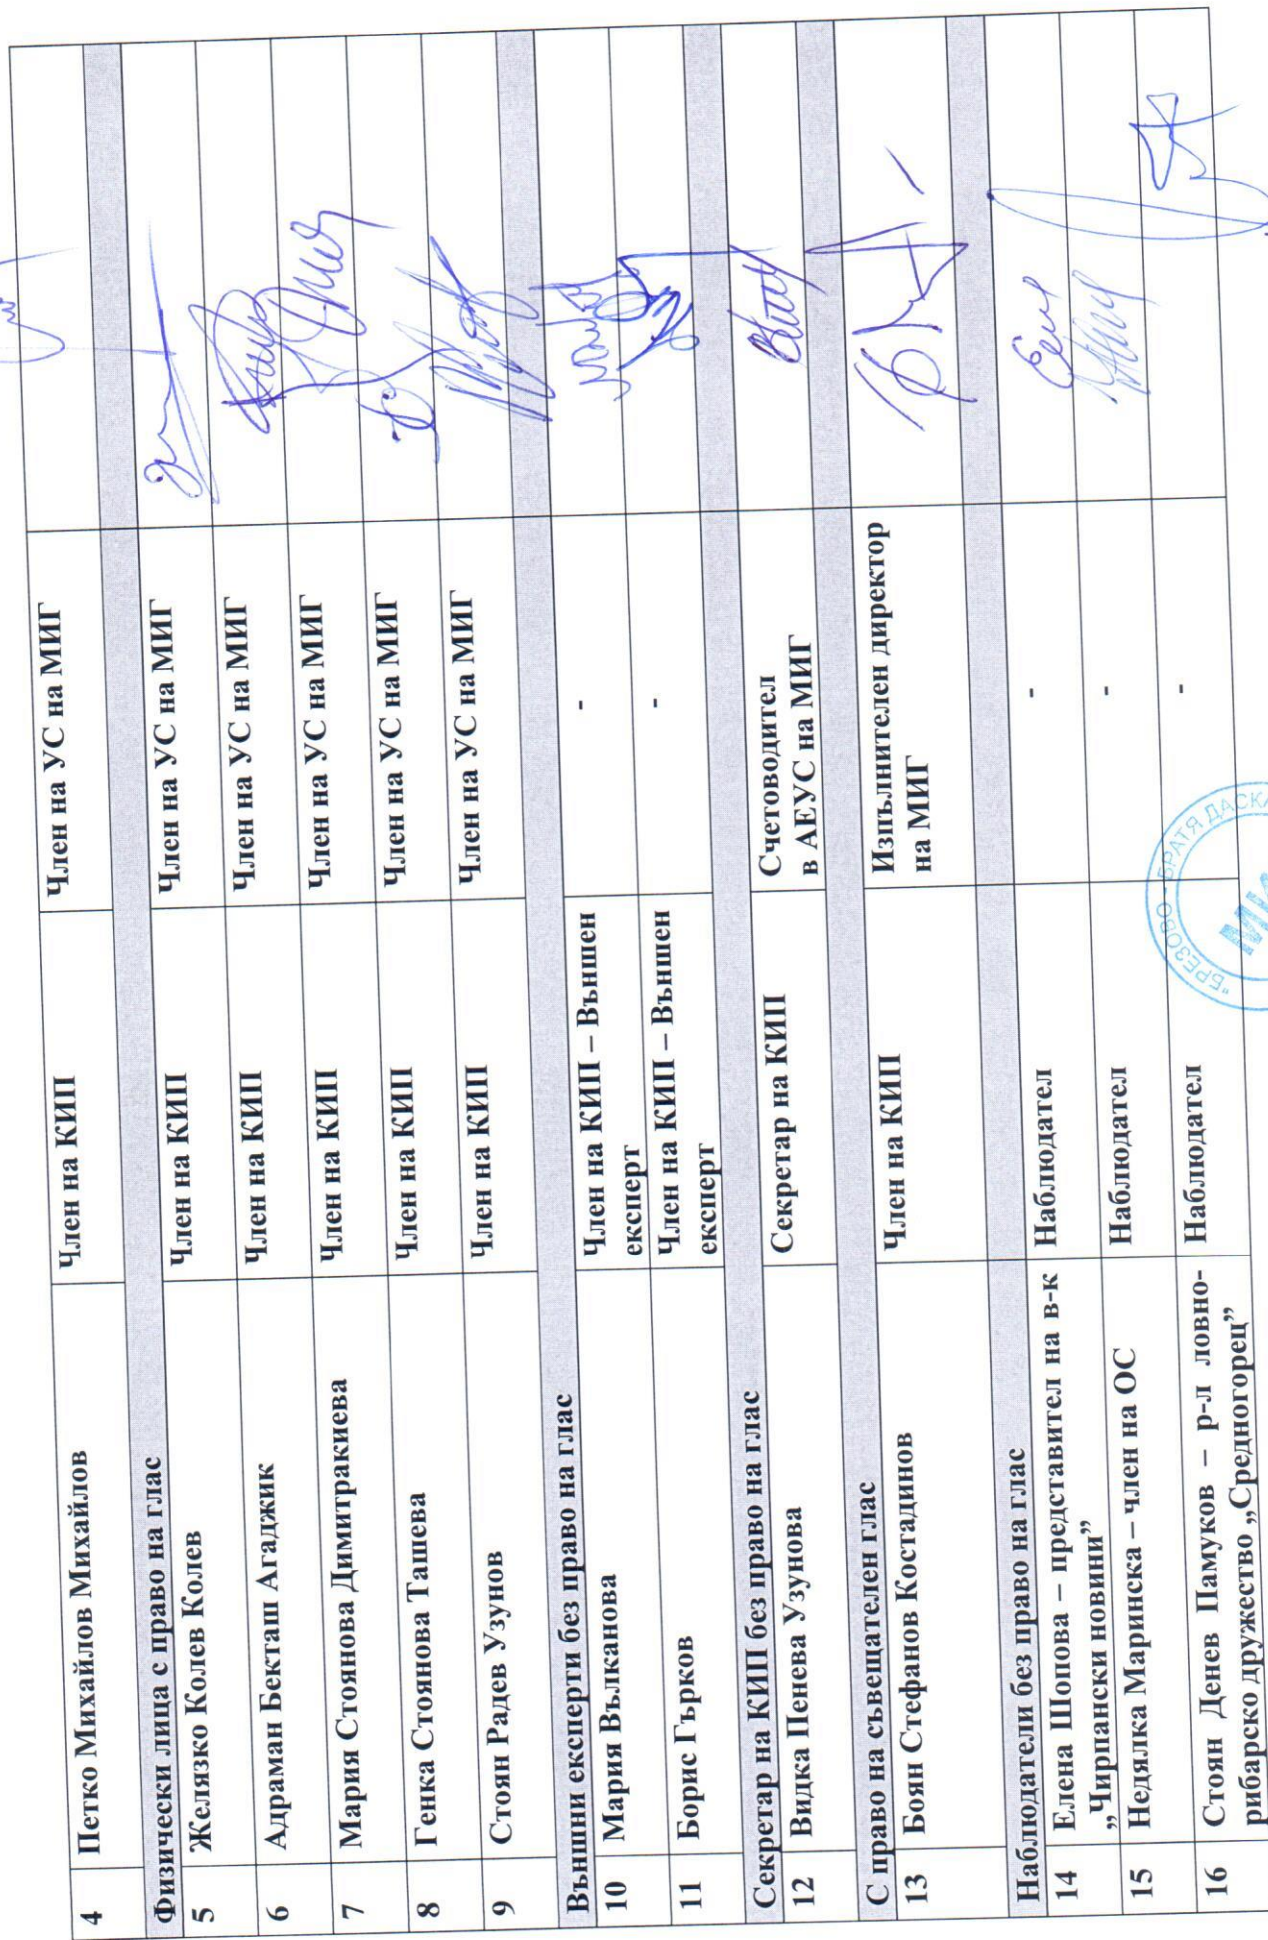 4 Петко Михайлов Михайлов Член на КИП Член на УС на МИГ
Физически лица с право на глас
5 Желязко Колев Колев Член на КИП Член на УС на МИГ
6 Адраман Бекташ Агаджик Член на КИП Член на УС на МИГ
7 Мария Стоянова Димитракиева Член на КИП Член на УС на МИГ
8 Генка Стоянова Ташева Член на КИП Член на УС на МИГ
9 Стоян Радев Узунов Член на КИП Член на УС на МИГ
Външни експерти без право на глас
10 Мария Вълканова Член на КИП – Външен -
експерт
11 Борис Гърков Член на КИП – Външен -
експерт
Секретар на КИП без право на глас
12 Видка Пенева Узунова Секретар на КИП Счетоводител
в АЕУС на МИГ
С право на съвещателен глас
13 Боян Стефанов Костадинов Член на КИП Изпълнителен директор
на МИГ
Наблюдатели без право на глас
14 Елена Шопова – представител на в-к Наблюдател -
„Чирпански новини”
15 Недялка Маринска – член на ОС Наблюдател -
16 Стоян Денев Памуков – р-л ловно- Наблюдател -
рибарско дружество „Средногорец”
"БРЕЗОВО - БРАТЯ ДАСКА